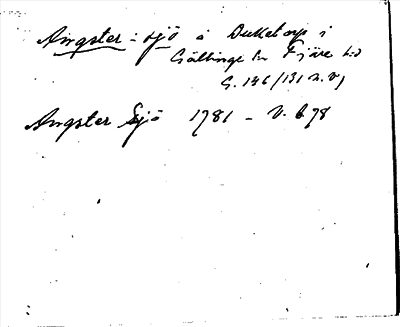 Angster-sjö å Duketorp i
Gällinge sn Fjäre hd
G. 146/131 n. v.
Angster Sjö 1781 – V. 678